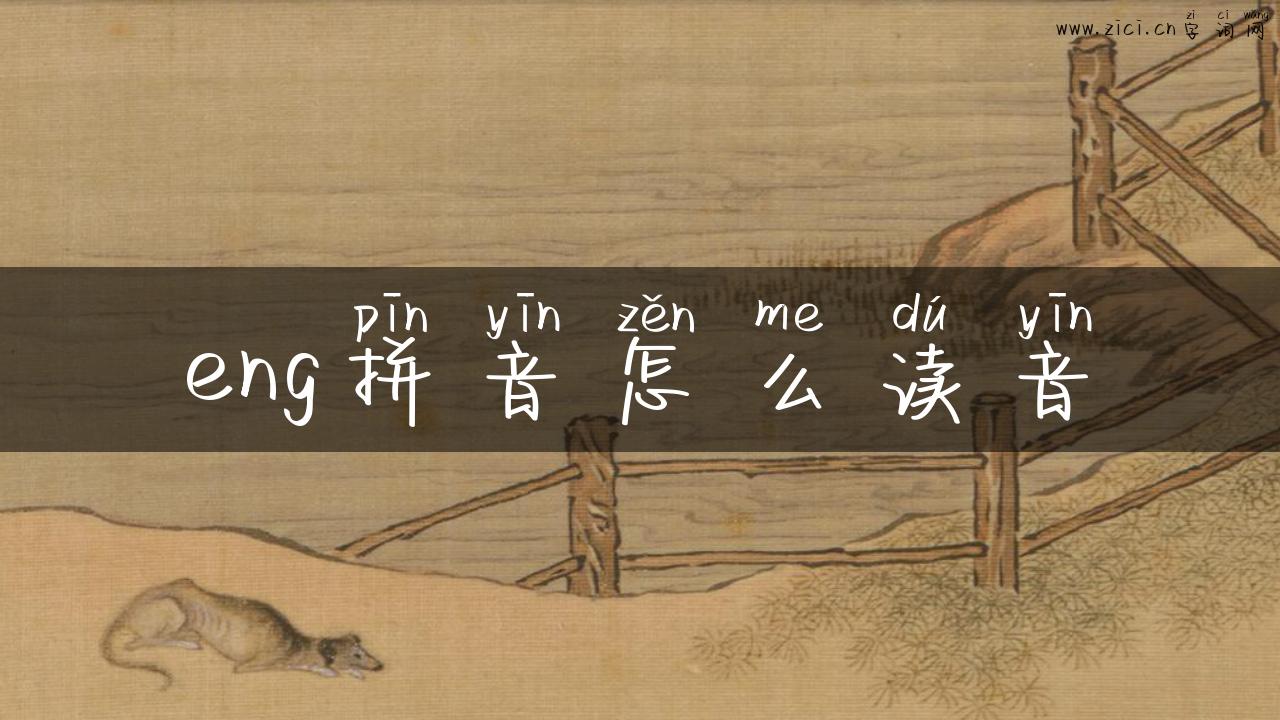 zì cí wǎng
www.zici.cn字词网
pīn yīn zěn me dú yīn
eng拼音怎么读音